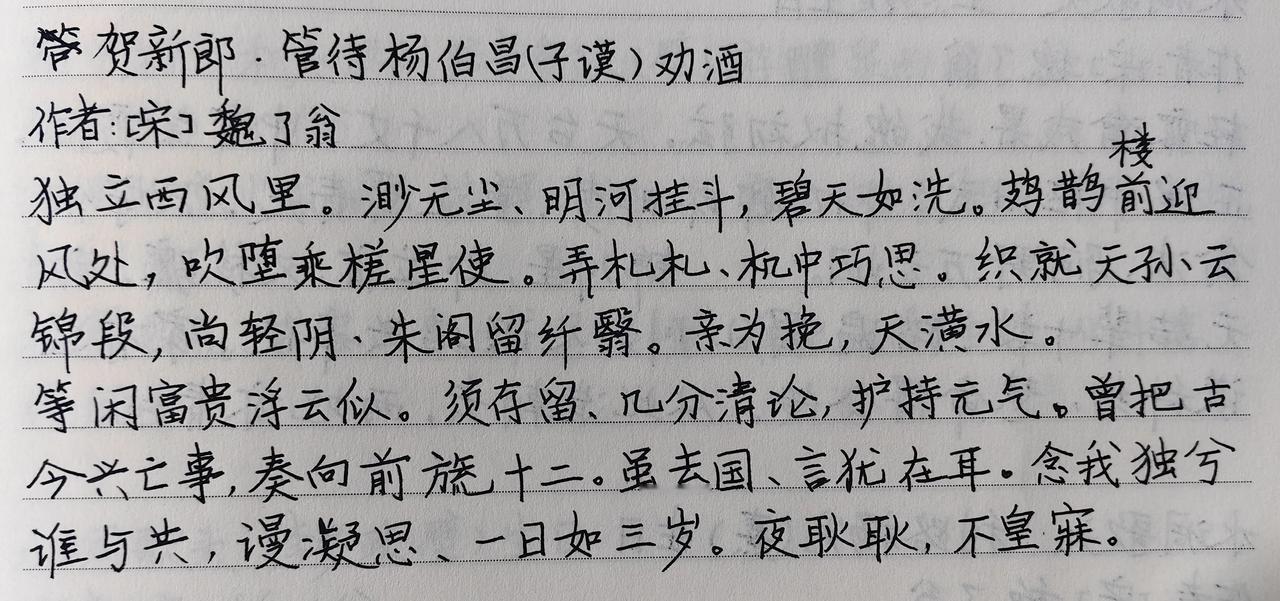 贺新郎·管待杨伯昌(子谟)劝酒
作者:[宋]魏了翁
独立西风里。渺无尘、明河挂斗,碧天如洗。鸹鹊楼前迎
风处,吹堕乘槎星使。弄札札、机中巧思。织就天孙云
锦段,尚轻阴、朱阁留纤翳。亲为挽,天潢水。
等闲富贵浮云似。须存留、几分清论,护持元气。曾把古
今兴亡事,奏向前旒十二。虽去国、言犹在耳。念我独兮
谁与共,谩凝思、一日如三岁。夜耿耿,不皇寐。